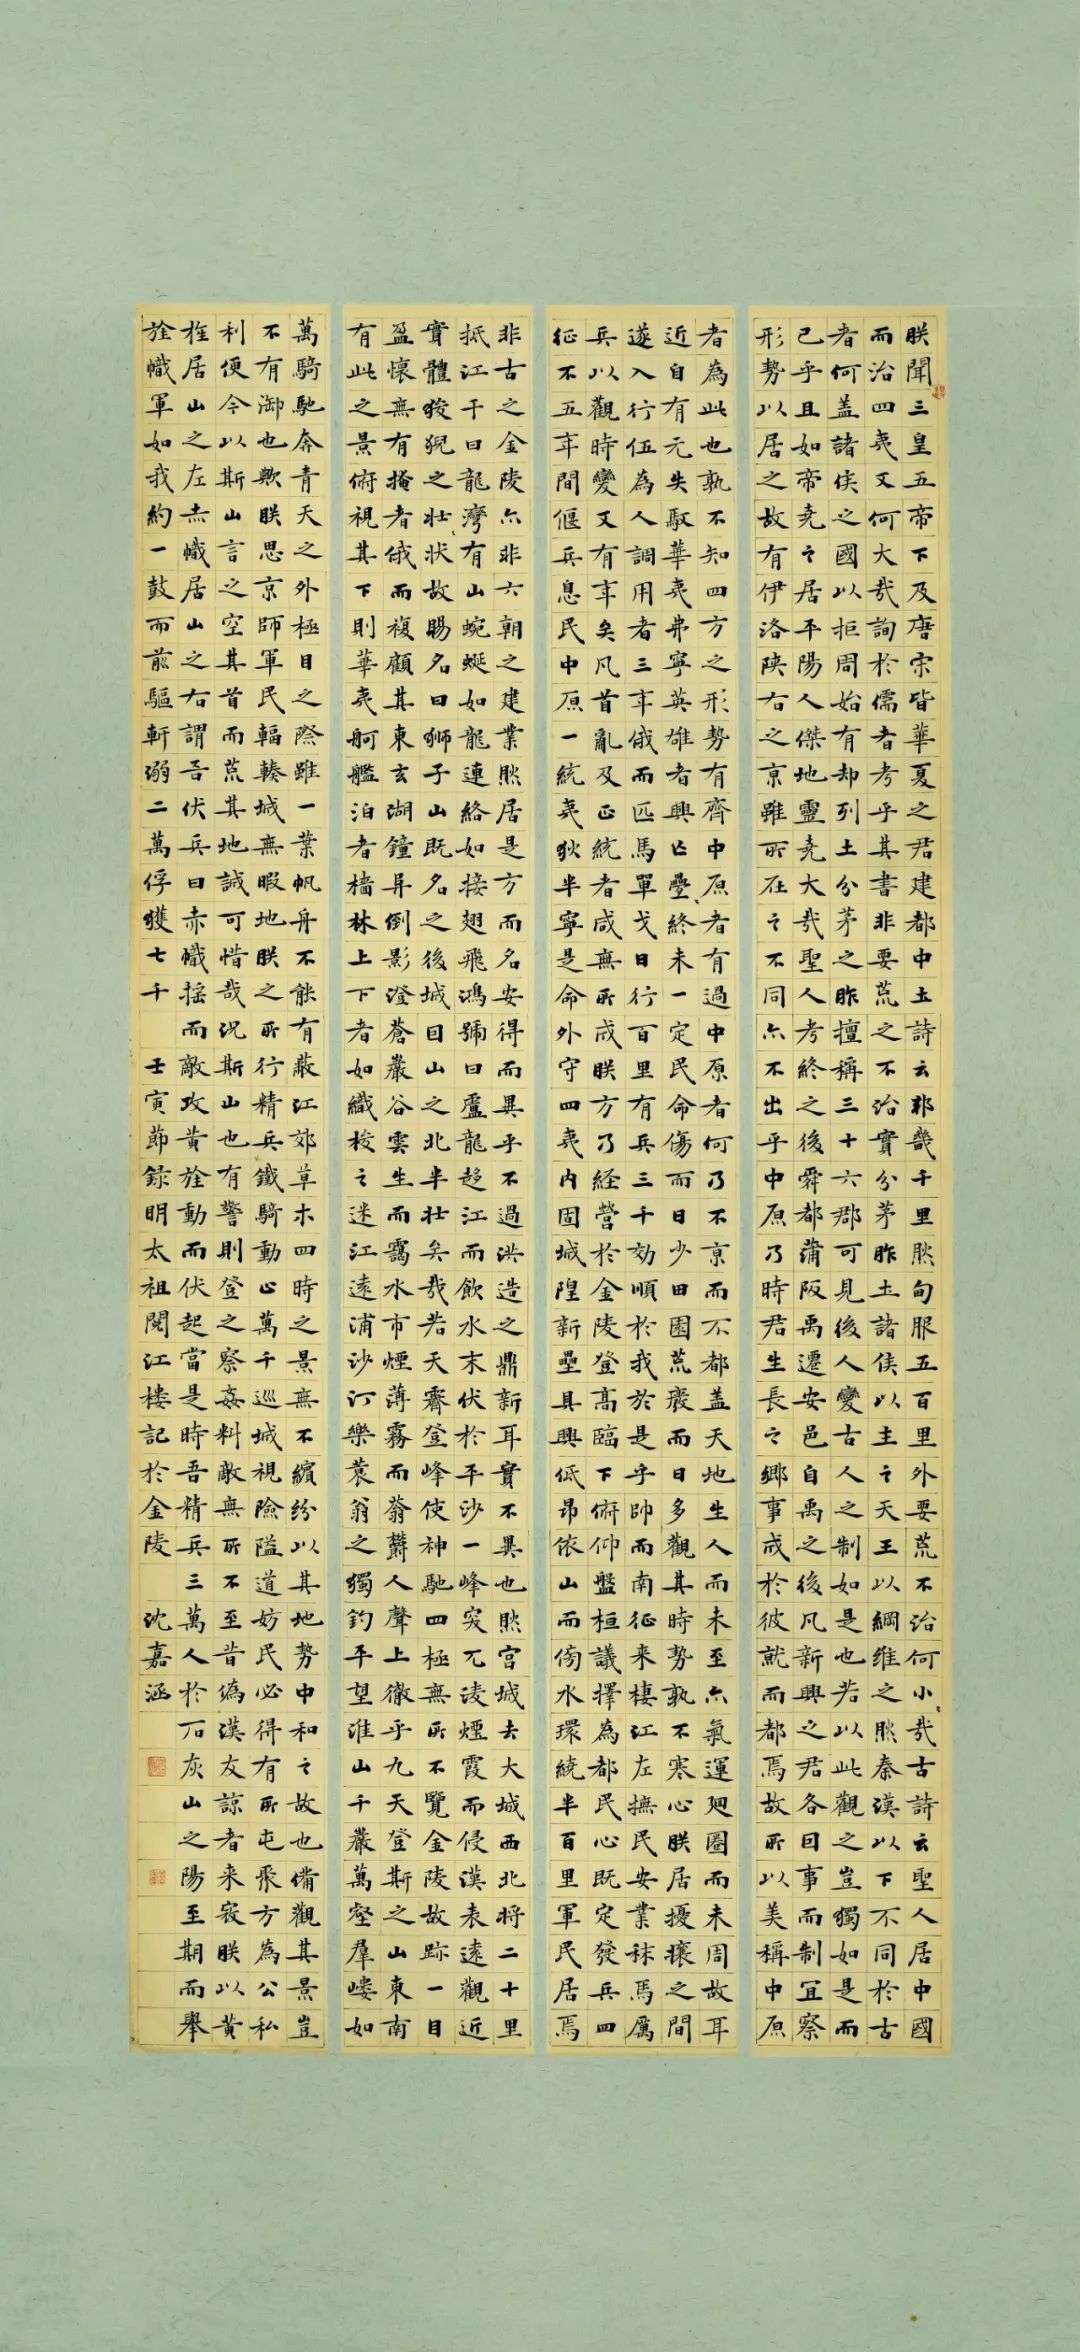 朕聞三皇五帝下及唐宋皆華夏之君建都中土詩云邦畿千里然甸服五百里外要荒不治何小哉古詩云聖人居中國
而治四夷又何大哉詢於儒者考乎其書非要荒之不治實分茅胙土諸侯以主之天王以綱維之然秦漢以下不同於古
者何蓋諸侯之國以拒周始有却列土分茅之胙擅稱三十六郡可見後人變古人之制如是也若以此觀之豈獨如是而
已乎且如帝堯之居平陽人傑地靈堯大哉聖人考終之後舜都蒲阪禹遷安邑自禹之後凡新興之君各因事而制宜察
形勢以居之故有伊洛陝右之京雖所在之不同亦不出乎中原乃時君生長之鄉事成於彼就而都焉故所以美稱中原
者為此也孰不知四方之形勢有齊中原者有過中原者何乃不京而不都蓋天地生人而未至亦氣運迴圈而未周故耳
近自有元失馭華夷弗寧英雄者興亡疊疊終未一定民命傷而日少田園荒廢而日多觀其時勢孰不寒心朕居擾攘之間
遂入行伍為人調用者三年俄而匹馬單戈日行百里有兵三千効順於我於是乎帥而南征来棲江左撫民安業秣馬厲
兵以觀時變又有年矣凡首亂及正統者咸無所成朕方乃経營於金陵登高臨下俯仰盤桓議擇為都民心既定發兵四
征不五年間偃兵息民中原一統夷狄半寧是命外守四夷内固城隍新壘具興低昂依山而傍水環繞半百里軍民居焉
非古之金陵亦非六朝之建業然居是方而名安得而異乎不過洪造之鼎新耳實不異也然宮城去大城西北将二十里
抵江干曰龍灣有山蜿蜒如龍連絡如接翅飛鴻號曰盧龍趨江而飲水末伏於平沙一峰突兀凌煙霞而侵漢表遠觀近
實體狻猊之壮状故賜名曰獅子山既名之後城因山之北半壮矣哉若天霽登峰使神馳四極無所不覽金陵故跡一目
盈懷無有掩者俄而複顧其東玄湖鐘阜倒影澄蒼巖谷雲生而靄水市煙薄霧而蓊鬱人聲上徹乎九天登斯之山東南
有此之景俯視其下則華夷舸艦泊者檣林上下者如織梭之迷江遠浦沙汀樂蓑翁之獨釣平望淮山千巖萬壑羣嶁如
萬騎馳奔青天之外極目之際雖一葉帆舟不能有蔽江郊草木四時之景無不繽紛以其地勢中和之故也備觀其景豈
不有御也歟朕思京師軍民輻輳城無暇地朕之所行精兵鐵騎動止萬千巡城視險隘道妨民必得有所屯聚方為公私
利便今以斯山言之空其首而荒其地誠可惜哉況斯山也有警則登之察姦料敵無所不至昔偽漢友諒者来寇朕以黄
旌居山之左赤幟居山之右謂吾伏兵曰赤幟揺而敵攻黄旌動而伏起當是時吾精兵三萬人於石灰山之陽至期而舉
旌幟軍如我約一鼓而前驅斬溺二萬俘獲七千
壬寅節録明太祖閱江樓記於金陵 沈嘉涵